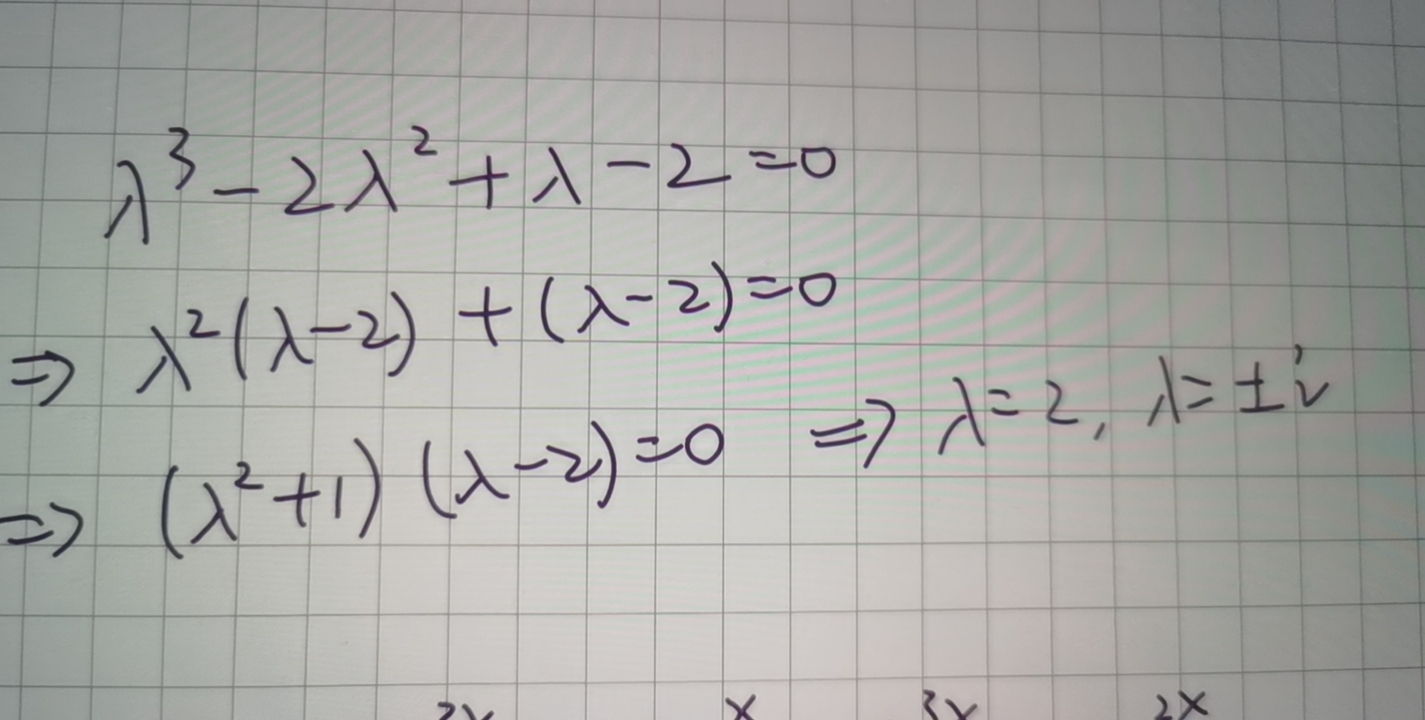 λ³ - 2λ² + λ - 2 = 0
⇒ λ²(λ-2) + (λ-2) = 0
⇒ (λ²+1)(λ-2) = 0 ⇒ λ = 2, λ = ±i